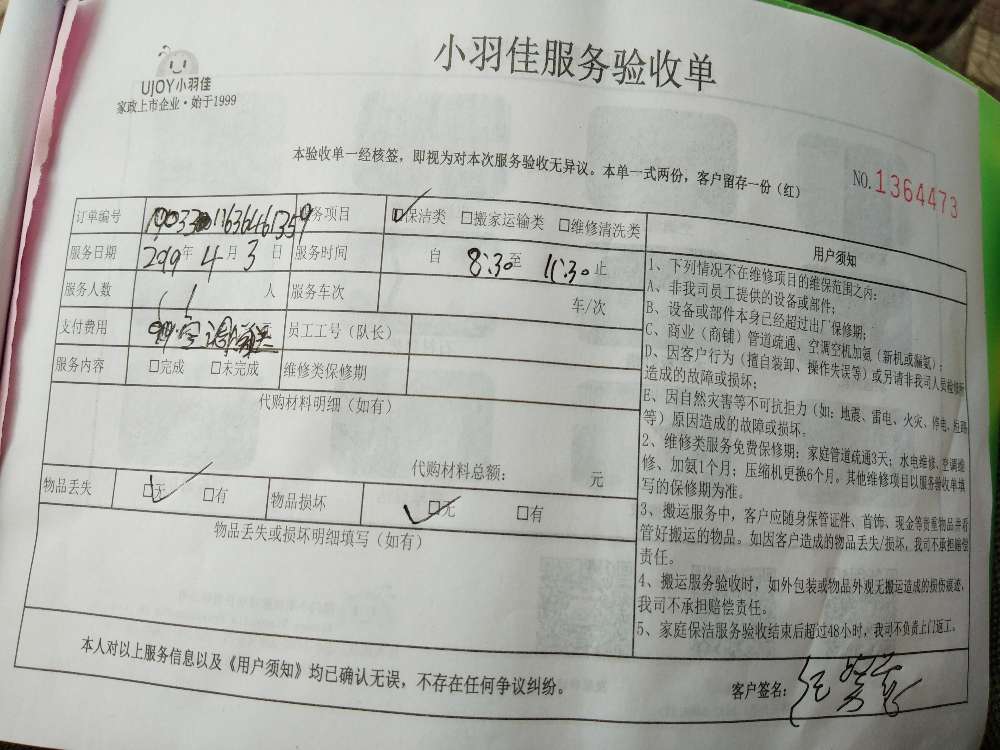 UJOY小羽佳
家政上市企业·始于1999
小羽佳服务验收单
本验收单一经核签，即视为对本次服务验收无异议。本单一式两份，客户留存一份（红）
NO.1364473
订单编号 务项目 保洁类 □搬家运输类 □维修清洗类
服务日期 年 4 月 3 日 服务时间 自 8:30 至 11:30 止
服务人数 人 服务车次 车/次
支付费用 员工工号（队长）
服务内容 □完成 □未完成 维修类保修期
代购材料明细（如有）
代购材料总额： 元
物品丢失 □无 □有 物品损坏 □无 □有
物品丢失或损坏明细填写（如有）
用户须知
1、下列情况不在维修项目的维保范围之内：
A、非我司员工提供的设备或部件；
B、设备或部件本身已经超过出厂保修期；
C、商业（商铺）管道疏通、空调空机加氨（新机或漏氨）；
D、因客户行为（擅自装卸、操作失误等）或另请非我司人员
造成的故障或损坏；
E、因自然灾害等不可抗拒力（如：地震、雷电、火灾、停电、
等）原因造成的故障或损坏。
2、维修类服务免费保修期：家庭管道疏通3天；水电维修、空调维
修、加氨1个月；压缩机更换6个月。其他维修项目以服务验收单填
写的保修期为准。
3、搬运服务中，客户应随身保管证件、首饰、现金等贵重物品并看
管好搬运的物品。如因客户造成的物品丢失/损坏，我司不承担赔偿
责任。
4、搬运服务验收时，如外包装或物品外观无搬运造成的损伤痕迹，
我司不承担赔偿责任。
5、家庭保洁服务验收结束后超过48小时，我司不负责上门返工。
本人对以上服务信息以及《用户须知》均已确认无误，不存在任何争议纠纷。
客户签名：